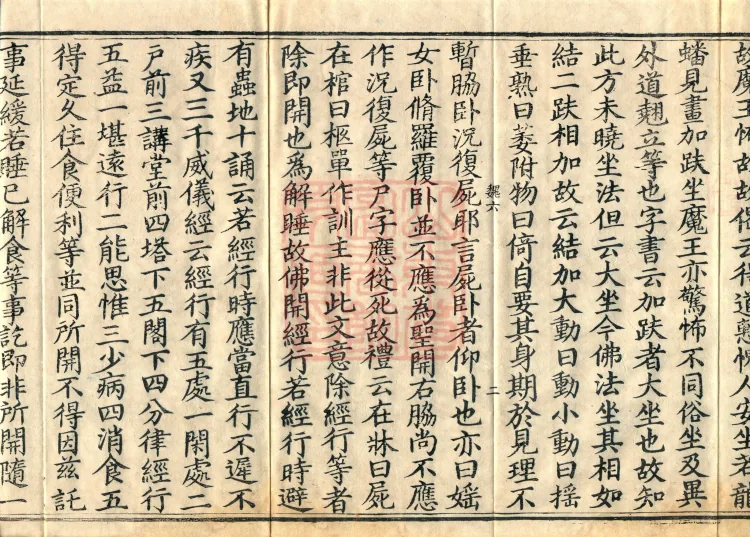 故魔王怖故故偈云得道慙愧人安坐若龍
蟠見畫加趺坐魔王亦驚怖不同俗坐及異
外道翹立等也字書云加趺者大坐也故知
此方未曉坐法但云大坐今佛法坐其相如
結二趺相加故云結加大動曰動小動曰揺
垂熟曰萎附物曰倚自要其身期於見理不
暫脇卧況復屍耶言屍卧者仰卧也亦曰婬
女卧脩羅覆卧並不應為聖開右脇尚不應
作況復屍等尸字應從死故禮云在牀曰屍
在棺曰柩單作訓主非此文意除經行等者
除即開也為解睡故佛開經行若經行時避
有蟲地十誦云若經行時應當直行不遲不
疾又三千威儀經云經行有五處一閑處二
戸前三講堂前四塔下五閤下四分律經行
五益一堪遠行二能思惟三少病四消食五
得定久住食便利等並同所開不得因茲託
事延緩若睡已解食等事訖即非所開隨一
二